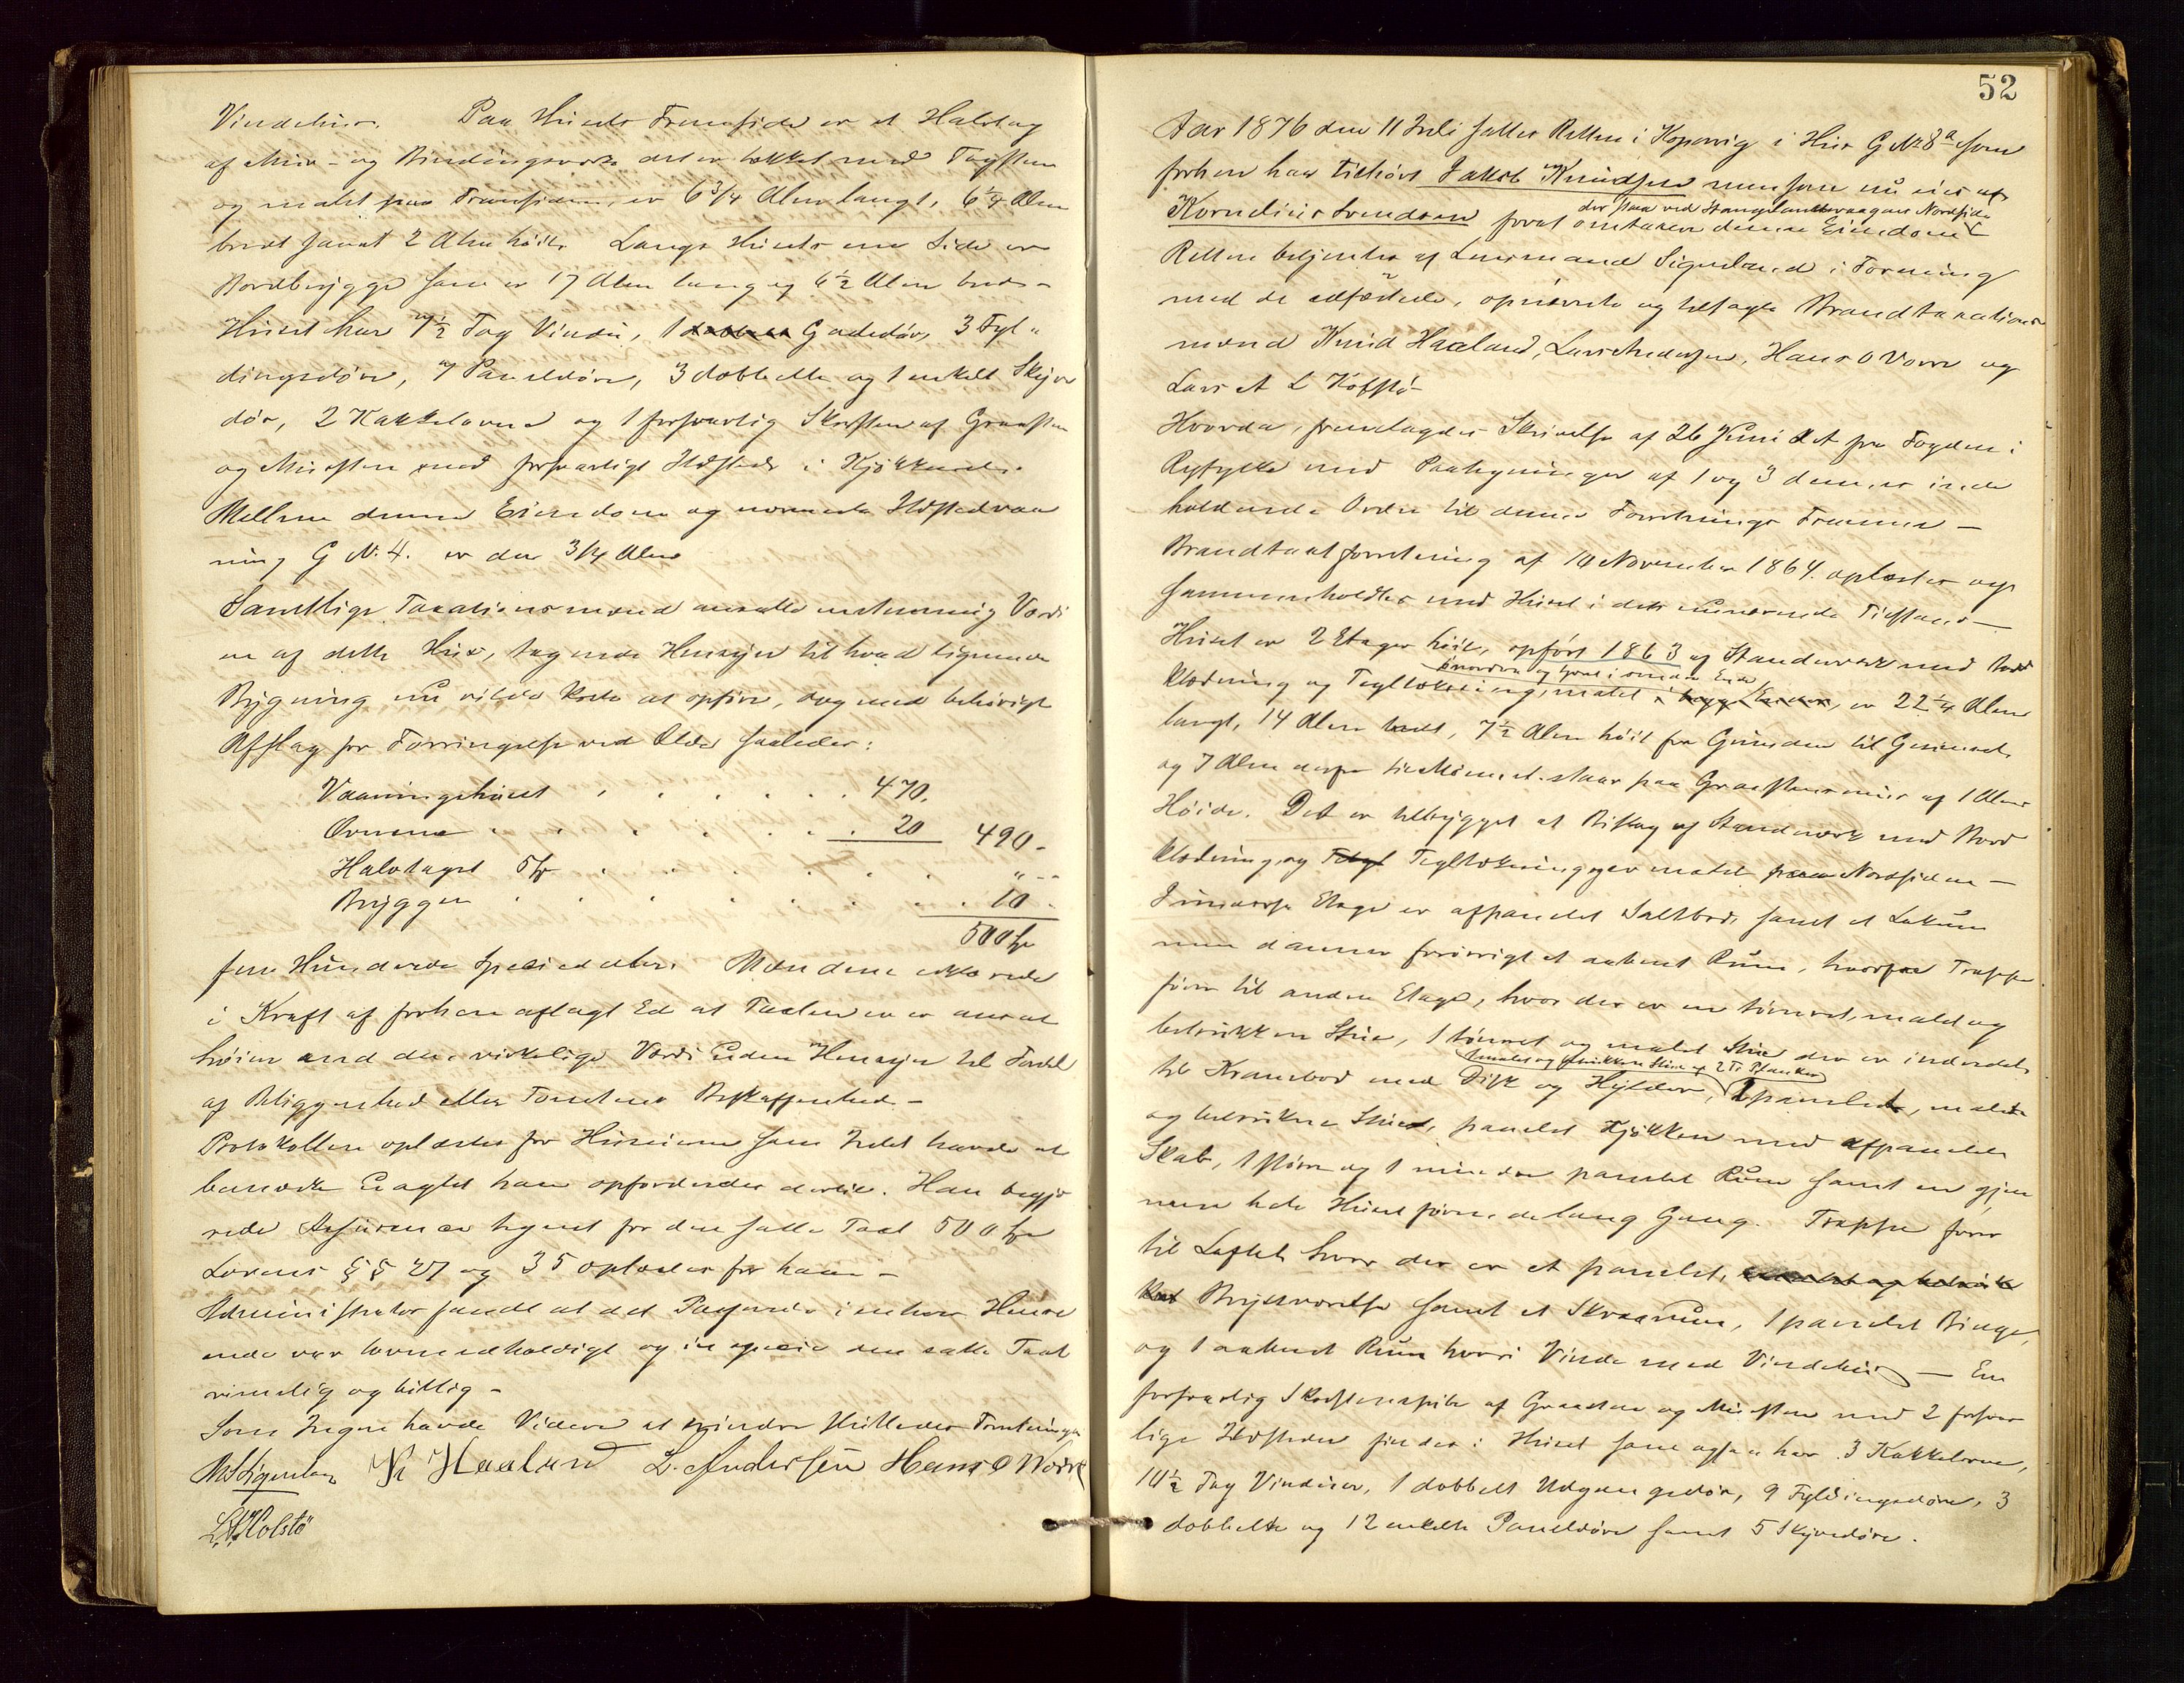 Vindehuus. Paa Husets Fremside er et Halvtag
af Muur- og Bindingsverk det er tækket med Tagsten
og malet paa Fremsiden, er 6 3/4 Alen langt, 6 1/4 Alen
bredt samt 2 Alen höit. Langs Husets ene Side er
Bordbrygge som er 17 Alen lang og 6 1/2 Alen bred -
Huset har 7 1/2 Fag Vindu, 1 Gadedör, 3 Fyl-
dingsdöre, 7 Paneldöre, 3 dobbelte og 1 enkelt Skyve
dör, 2 Kakkelovne og 1 forsvarlig Skorsten af Graasten
og Mursten med forsvarligt Ildsted i Kjökkenet.
Mellem denne Eiendom og nærmeste Ildstedvaa
ning G N. 4. er der 3/4 Alen
Samtlige Taxationsmænd ansatte enstemmig Værdi
en af dette Hus, tagende Hensyn til hvad lignende
Bygning nu vilde koste at opföre, dog med behörigt
Afslag for Forringelse ved Ælde saaledes:
Vaaningshuset . . . . . 470.
Ovnene . . . . . 20 490 -
Halvtaget Spd . . . . . " -
Bryggen . . . . . 10 -
500 Spd
fem Hundrede Speciedaler. Mændene erklærede
i Kraft af forhen aflagt Ed at Taxten ei er ansat
höiere end den virkelige Værdi uden Hensyn til Fordel
af Beliggenhed eller Tomtens Beskaffenhed -
Protokollen oplæstes for Huseieren som Intet havde at
bemærke uagtet han opfordredes dertil. Han begjæ
rede Assurance tegnet for den satte Taxt 500 Spd
Lovens §§ 27 og 35 oplæstes for ham -
Administrator fandt at det Passerede i enhver Henseende
ende var lovmedholdigt og in specie den satte Taxt
rimelig og billig -
Som Ingen havde Videre at erindre sluttedes Forretningen
K Haaland L. Andersen Hans O Vorre
L.A. Holstö
52
Aar 1876 den 11 Juli sattes Retten i Kopervig i Hus G No 8a som
forhen har tilhört Jakob Knudsen men som nu eies af
der staar ved Stangelandsvaagens Nordside
Kornelius Svendsen forat omtaxere denne Eiendom
Retten betjentes af Lensmand Sigenland i Forening
med de edfæstede, opnævnte og tilsagte Brandtaxations
mænd Knud Haaland, Lars Andersen, Hans O Vorre og
Lars A L Holstö
Hvorda fremlagdes Skrivelse af 26 Juni d A fra Fogden i
Ryfylke med Paategninger af 1 og 3 dennes inde
holdende Ordre til denne Forretnings Fremme -
Brandtaxtforretning af 10 November 1864. oplæstes og
sammenholdtes med Huset i dets nuværende Tilstand -
Huset er 2 Etager höit, opfört 1863 af Standverk med Bord
klædning og Tegltækning, malet i begge Ender, er 22 1/4 Alen
langt, 14 Alen bredt, 7 1/2 Alen höit fra Grunden til Gesimsen
og 7 Alen derfra til Mönnet. staar paa Graastensmur af 1 Alens
Höide. Det er tilbygget et Bislag af Standværk med Bord
klædning og Tegltækning og er malet paa Nordsiden -
I underste Etage er afpanelet Saltbod samt et Lokum
men danner forövrigt et aabent Rum, hvorfra Trappe
förer til anden Etage, hvor der er en tömret, malet og
betrukken Stue, 1 tömret og malet Stue der er indredet
1 malet og betrukken Stue af 2 T. Planker
til Krambod med Disk og Hylder, 1 panelet, malet
og betrukken Stue, panelet Kjökken med afpanelet
Skab, 1 större og 1 mindre panelet Rum samt en gjen
nem hele Huset förende lang Gang. Trappe förer
til Loftet hvor der er et panelet,
Kvistværelse samt et Skraarum, 1 panelet Binge,
og 1 aabent Rum hvori Vinde med Vindehus - En
forsvarlig Skorstenspibe af Graasten og Mursten med 2 forsvar
lige Ildsteder findes i Huset som ogsaa har 3 Kakkelovne,
10 1/2 Fag Vinduer, 1 dobbelt Udgangsdör, 9 Fyldingsdöre, 3
dobbelte og 12 enkelte Paneldöre samt 5 Skyvedöre.